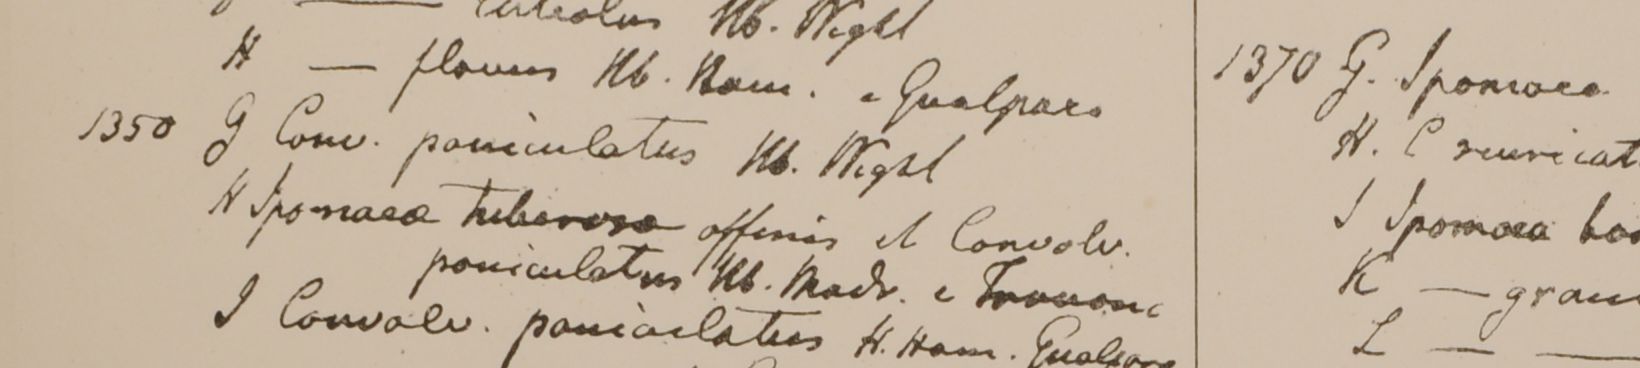 luteolus Hb. Wight
H — flavus Hb. Ham. e Gualpara
1350 G Conv. paniculatus Hb. Wight
H Ipomaea tuberosa affinis et Convolv.
paniculatus Hb. Madr. e Travanc
I Convolv. paniculatus H. Ham. Gualpara
1370 G. Ipomoea
H. C muricat
I Ipomoea bon
K — gran
L — —